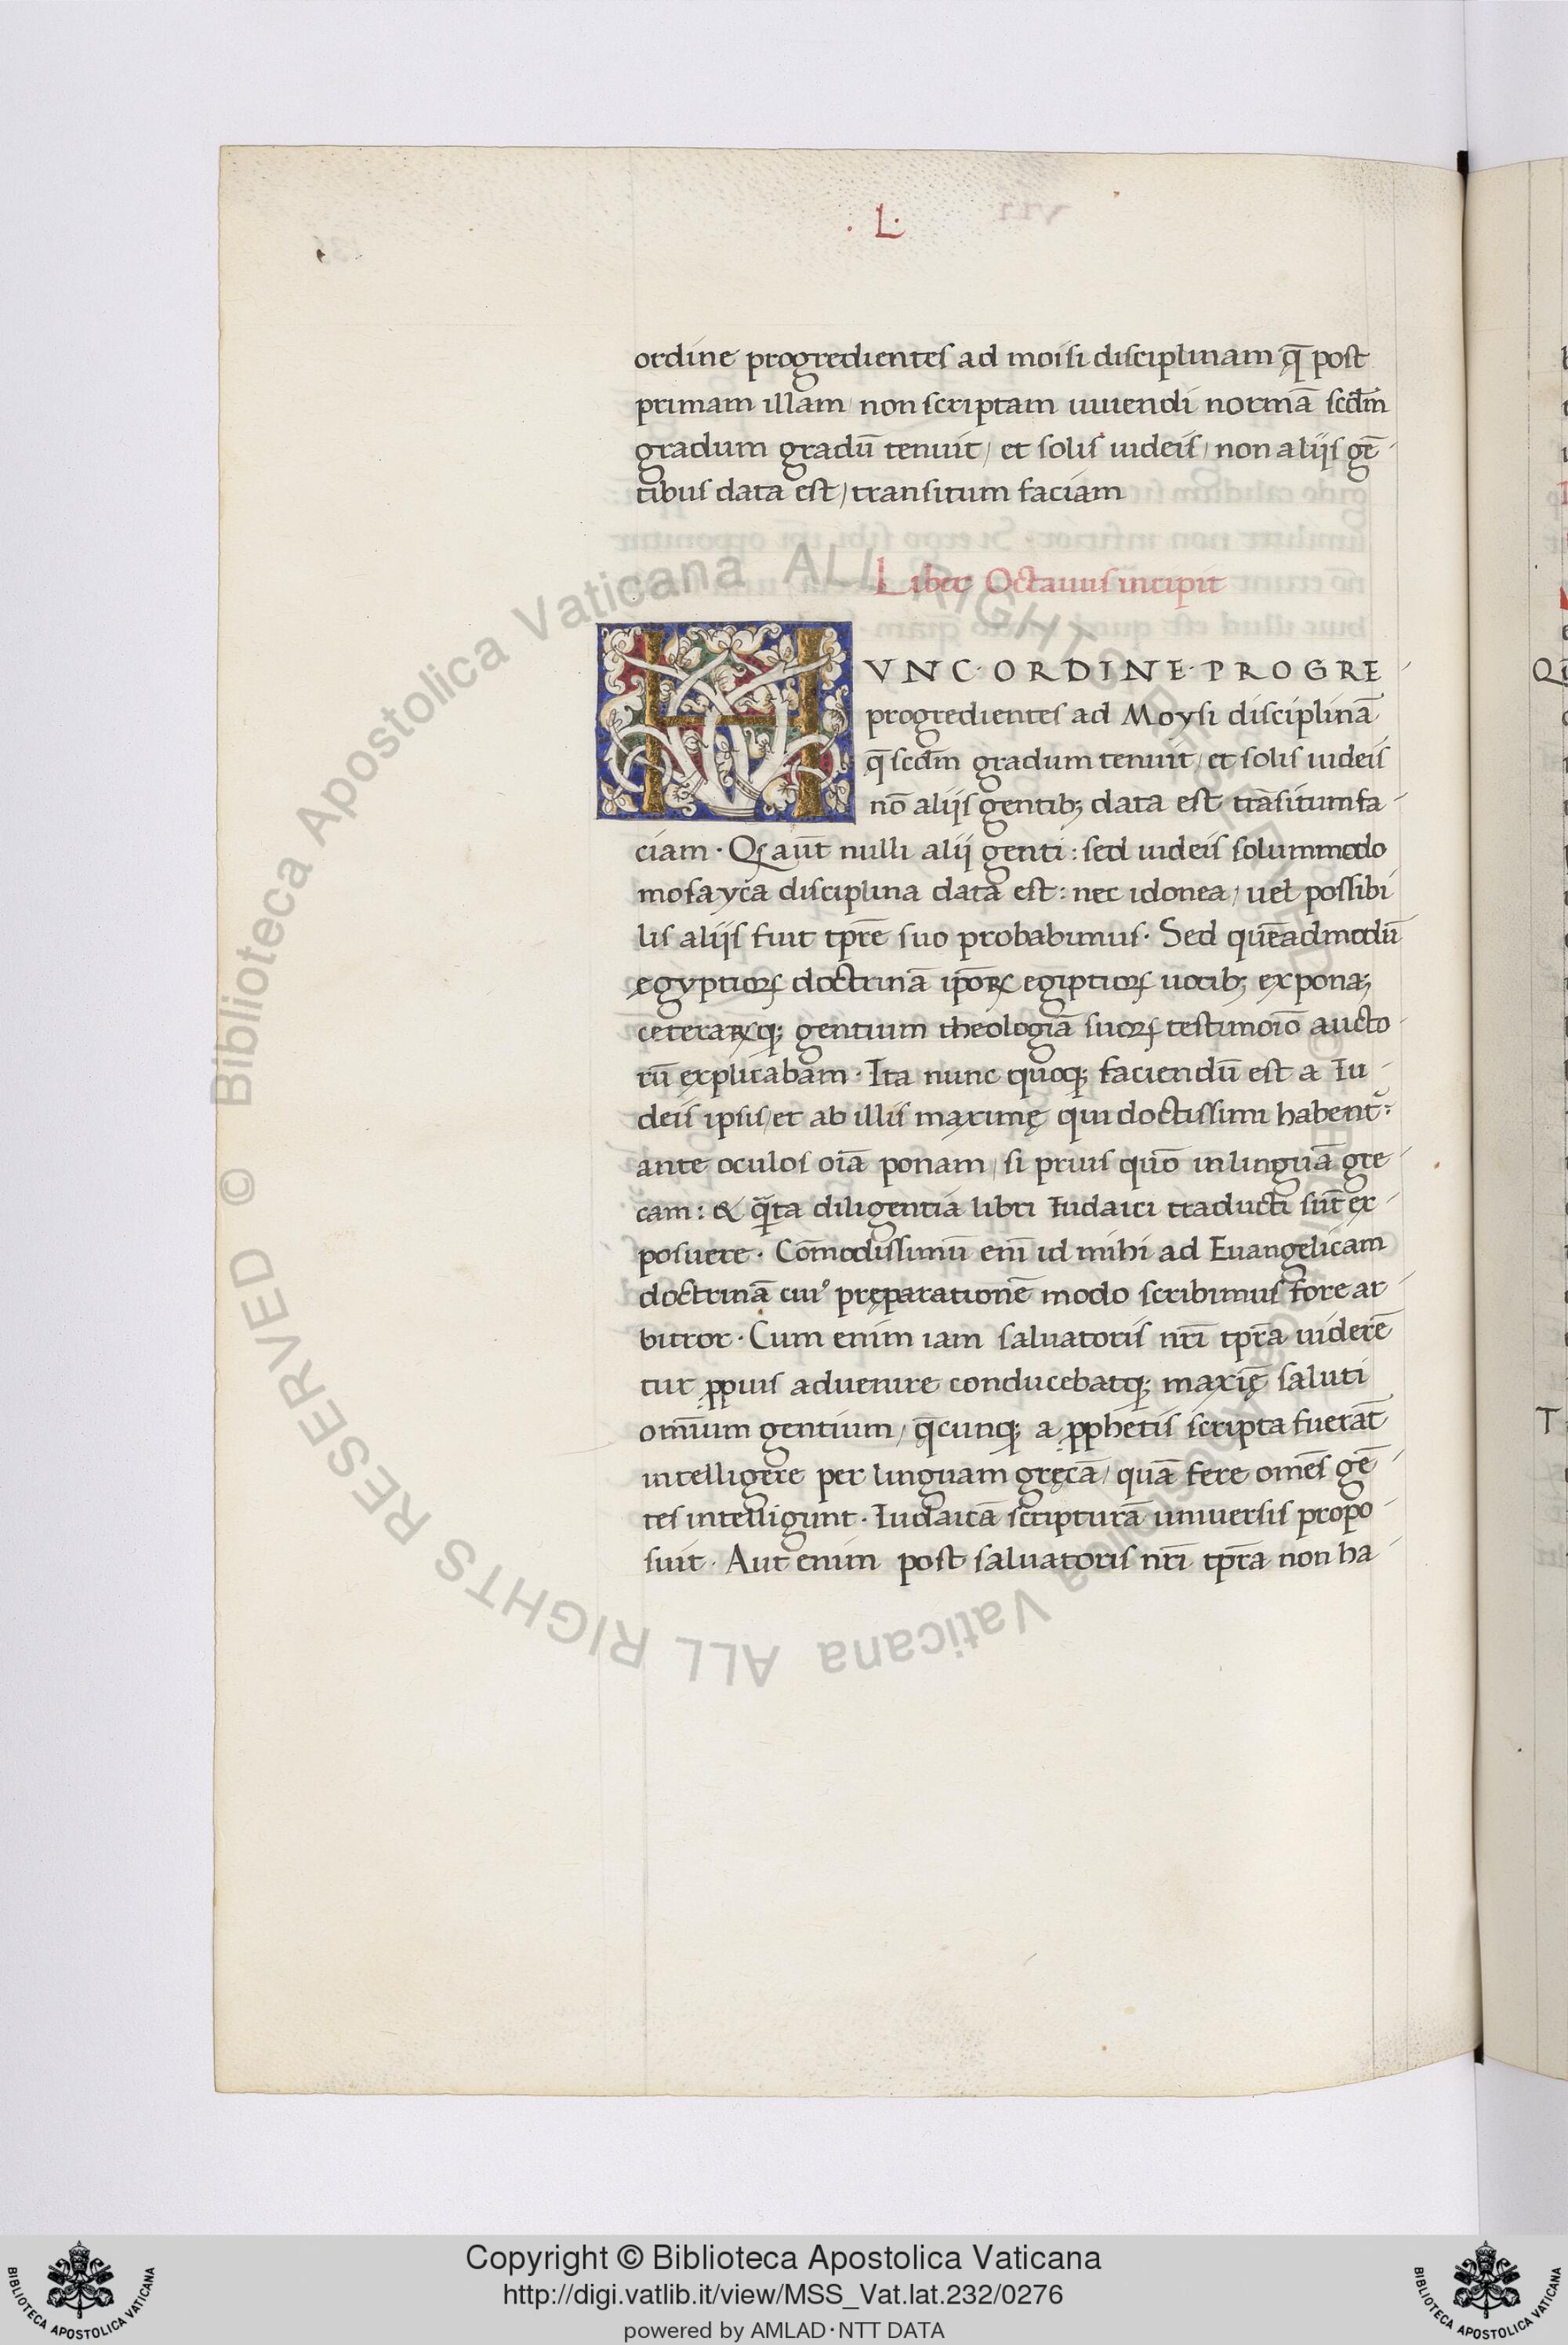 · L ·
ordine progredientes ad moisi disciplinam q̄ post
primam illam non scriptam uiuendi normā scd̄m
gradum gradū tenuit / et solis iudeis / non alijs gē
tibus data est / transitum faciam
Liber Octauus incipit
H VNC · ORDINE · PROGRE
progredientes ad Moysi disciplinā
q̄ scd̄m gradum tenuit / et solis iudeis
nō alijs gentib; data est trāsitum fa
ciam · Qꝫ aūt nulli alij genti : sed iudeis solummodo
mosayca disciplina data est : nec idonea / uel possibi
lis alijs fuit tp̄re suo probabimus · Sed quēadmodū
egyptioꝝ doctrinā ip̄oꝝ egiptioꝝ uocib; exponaꝫ
ceteraꝝq; gentium theologiā suoꝝ testimōio aucto
rū explicabam · Ita nunc quoq; faciendū est a Iu
deis ipsis / et ab illis maximę qui doctissimi habent᷑ :
ante oculos oīa ponam / si prius quō in linguā gre
cam : & qᷓ̄ta diligentia libri Iudaici traducti sūt ex
posuere · Cōmodissimū enī id mihi ad Euangelicam
doctrinā cuiꝰ pręparationē modo scribimus fore ar
bitror · Cum enim iam saluatoris nr̄i tp̄ra uiderē
tur ꝓpius aduenire conducebatq; maxīę saluti
omn̄ium gentium / q̄cunq; a ꝓphetis scripta fuerāt
intelligere per linguam gręcā / quā fere omēs gē
tes intelligunt · Iudaicā scripturā uniuersis propo
suit · Aut enim post saluatoris nr̄i tp̄ra non ha
Copyright © Biblioteca Apostolica Vaticana
http://digi.vatlib.it/view/MSS_Vat.lat.232/0276
powered by AMLAD·NTT DATA
BIBLIOTECA APOSTOLICA VATICANA
BIBLIOTECA APOSTOLICA VATICANA
© Biblioteca Apostolica Vaticana ALL RIGHTS RESERVED
© Biblioteca Apostolica Vaticana ALL RIGHTS RESERVED